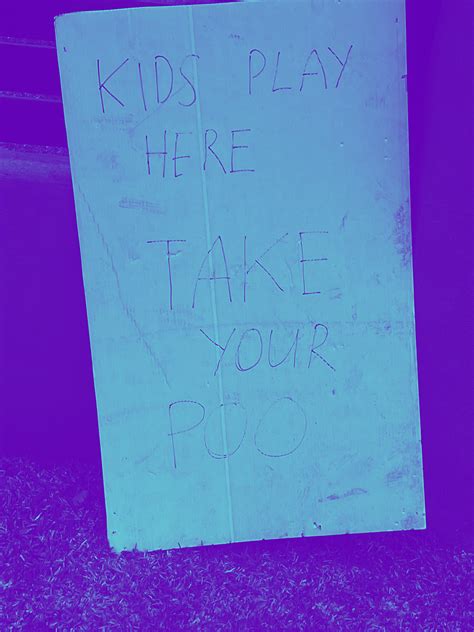 KIDS PLAY
HERE
TAKE
YOUR
POO